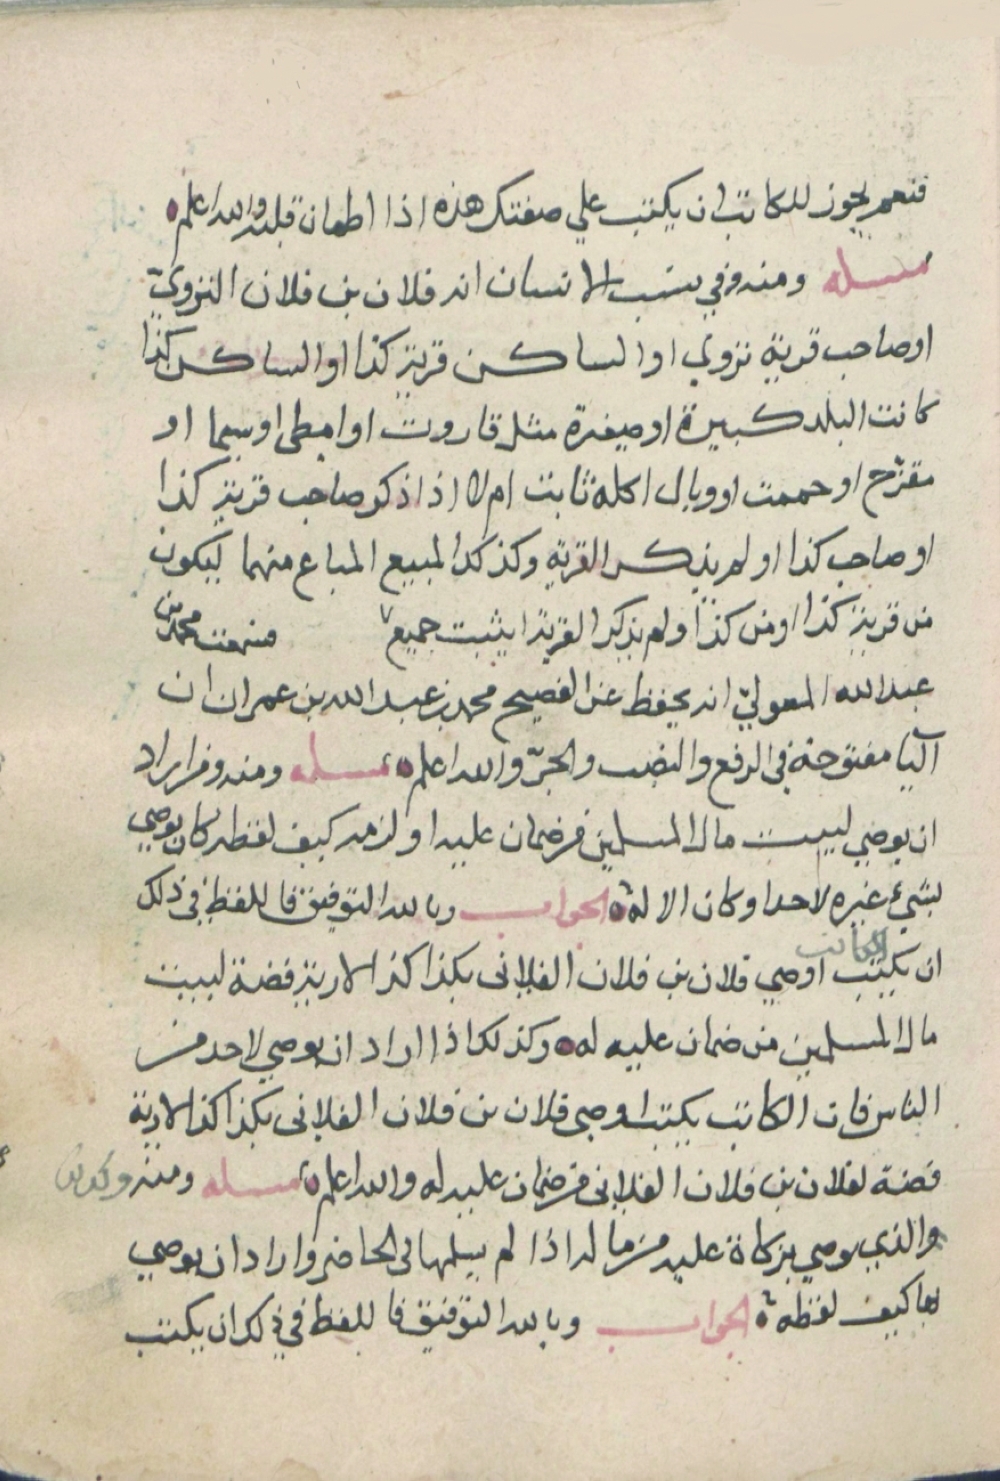 فنعم يجوز للكاتب ان يكتب علي صفتك هذه اذا اطمان قلبه والله اعلم
مسله ومنه وفي نسب الانسان انه فلان بن فلان النزويّ
اوصاحب قرية نزوي او الساكن قرية كذا او الساكن كذا
كانت البلد كبيرة او صغيرة مثل قاروت او امطى او سيما او
مقزح او حممت او وبال اكله ثابت ام لا اذا ذكر صاحب قرية كذا
او صاحب كذا او لم يذكر القرية وكذلك المبيع المباع منهما ليكون
من قرية كذا او من كذا ولم يذكر القرية ايثبت جميع منه سمعت محمد بن
عبدالله المعوليّ انه يحفظ عن الفصيح محمد بن عبدالله بن عمران ان
اليا مفتوحة في الرفع والنصب والجرّ والله اعلم مسله ومنه ومن اراد
ان يوصي لبيت مال المسلمين من ضمان عليه او لزمه كيف لفظه كان يوصي
بشيء غيره لاحد او كان الا له الجواب وبالله التوفيق فاللفظ في ذلك
ان يكتب الكاتب اوصي فلان بن فلان الفلاني بكذا كذا لارية فضة لبيت
مال المسلمين من ضمان عليه له وكذلك اذا اراد ان يوصي لاحد من
الناس فان الكاتب يكتب اوصى فلان بن فلان الفلاني بكذا كذا لارية
فضة لفلان بن فلان الفلاني من ضمان عليه له والله اعلم مسله ومنه
والذي يوصي بزكاة عليه من ماله اذا لم يسلمها في الحاضر واراد ان يوصي
بها كيف لفظه الجواب وبالله التوفيق فاللفظ في ذلك ان يكتب